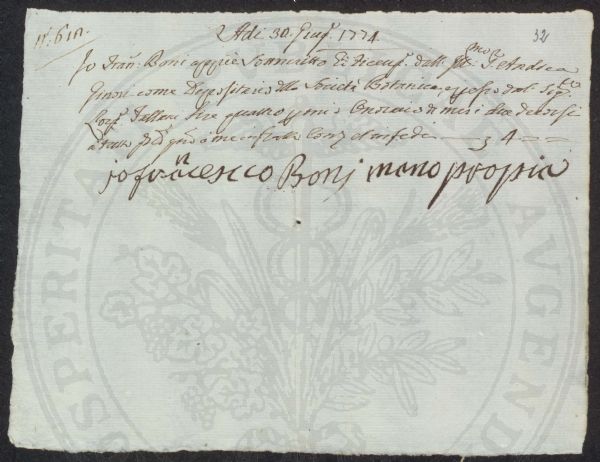 N.° 610.
Adi 30. Giug.° 1774.
32
Io Fran.co Boni appiè Sottoscritto Ho Ricev.to dall' Ill.mo Sig.r Andrea
Ginori come Depositario della Società Botanica, e per esso dal Sig.r
Lire quattro per mio Onorario di mesi due decorsi
a tutto
4
io francesco Boni mano propria
PROSPERITATI AUGENDAE